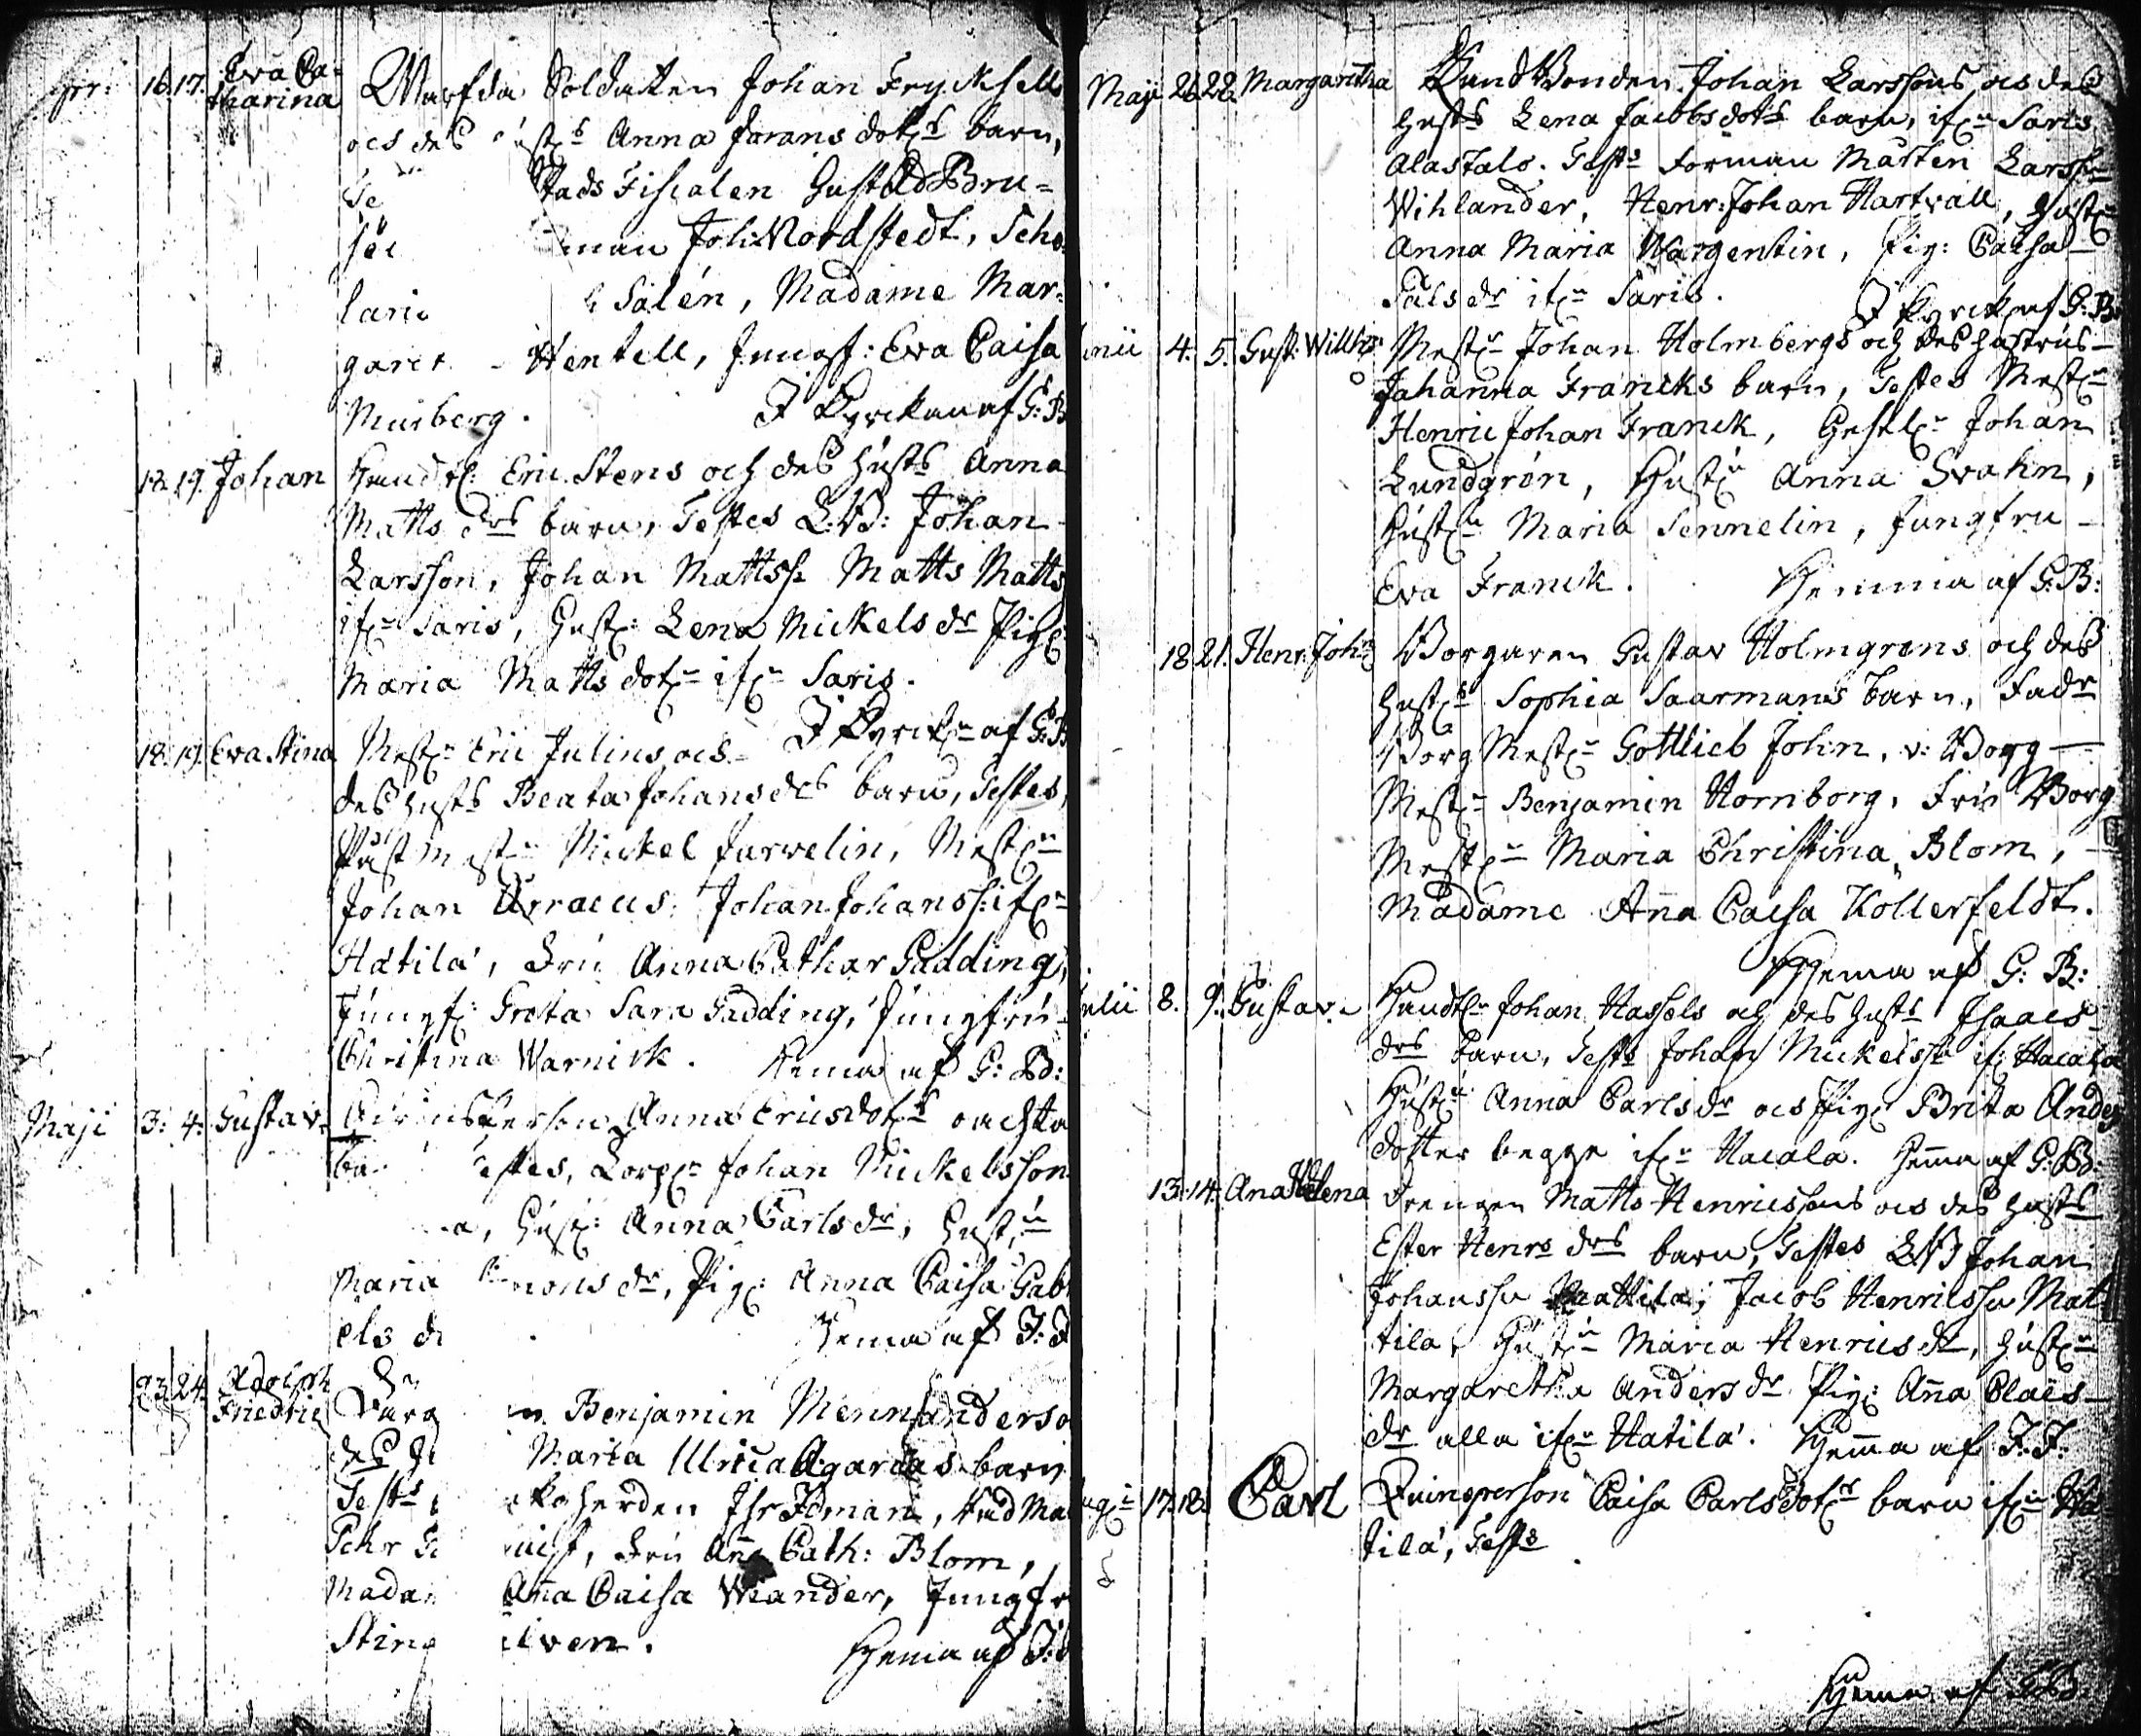 16. 17. Eva Ca=
tharina
Warfda Soldaten Johan Frycksells
ocs des Anna Jörans dotrs barn,
Stads Fiscalen Gust Ad Bru=
man Joh: Nordstedt, Scho=
laris Salén, Madame Mar=
garet Hentell, Jungf: Eva Caisa
Musberg. I Kyrckan af G: B
18. 19. Johan
Handtl: Eric Stens och des husts Anna
Matts drs barn, Testes L:B: Johan
Larsson, Johan Mattss: Matts Matts
ifrn Saris, Hustr: Lena Mickels dr Pig:
Maria Matts dotr ifrn Saris.
I Kyrckn af G:B
18. 19. Eva Stina
Mestrn Eric Julins ocs
des husts Beata Johans drs barn, Testes,
Mickel Jurvelin, Mestrn
Johan Johan Johanss: ifrn
Hatila, Fru Anna Cathar Gadding,
Jungf: Greta Sara Gadding, Jungfru
Christina Warnick. Hema af G: B:
Maji 3: 4: Gustav.
Anna Ericsdotrs oächta
Testes, Johan Mickelsson
a, Hustr: Anna Carls dr, Hustrn
Maria monsdr, Pig: Anna Caisa Gab
els dr Hema af J: F
23. 24. Adolph
Fredric
Benjamin Mennanders o
des Maria Ulrica Agardas barn
Tests herden Isr Idman,
Pehr qvist, Fru Aña Cath: Blom,
Madam Aña Caisa Weander, Jungfr
Stina ilven. Hema af J:
Maji 26 28 Margaretha
Land Bonden Johan Larssons ocs des
husts Lena Jacobsdots barn, ifrn Saris
Alastalo. Tests Forman Mårten Larssn
Wihlander, Henr: Johan Hartvall, Hustrn
Anna Maria Wargentin, Pig: Caisa
Påls dr ifrn Saris. I Kyrckn af G: B
unii 4. 5. Gust: Willhm
Mestrn Johan Holmbergs och des hustrus
Johanna Francks barn, Testes Mestrn
Henric Johan Franck, Gesel: Johan
Lundgrén, Hustrn Anna Svahn,
Hustrn Maria Sennelin, Jungfru
Eva Franck. Hemma af G: B:
18 21. Henr. Joh:
Borgaren Gustav Holmgrens och des
hustrs Sophia Saarmans barn, Fadr
Borg Mestrn Gottlieb John, v: Borg
Mestrn Benjamin Hornborg, Fru Borg
Mestrn Maria Christina Blom,
Madame Aña Caisa Kollerfeldt.
Hema af G: B:
ulii 8. 9. Gustav.
Handtln Johan Hassels och des husts Isaacs
drs barn, Tests Johan Mickelssn if: Hacala
Hustrn Anna Carls dr ocs Pig: Brita Anders
dotter begge ifrn Hacala. Hema af G: B:
13. 14. Ana Helena
Drengen Matts Henricssons ocs des husts
Ester Henrs drs barn, Testes L:B Johan
Johanssn Mattila, Jacob Henricssn Mat
tila, Hustrn Maria Henrics dr, Hustrn
Margaretha Anders dr Pig: Aña Claës
dr alla ifrn Hatila. Hema af J: F:
17. 18. Carl
Quinsperson Caisa Carlsdotrs barn ifrn Ha
tila, Tests
Hema af G:B